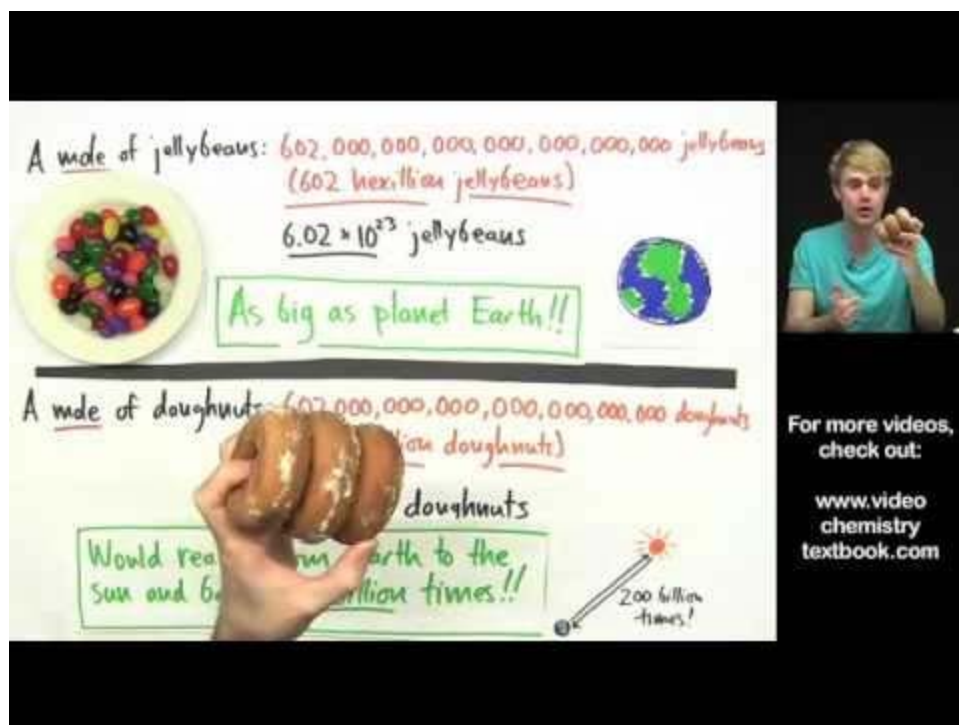 A mole of jellybeans: 602,000,000,000,000,000,000,000 jellybeans
(602 hexillion jellybeans)
6.02 * 10²³ jellybeans
As big as planet Earth!!
A mole of doughnuts: 602,000,000,000,000,000,000,000 doughnuts
doughnuts)
doughnuts
Would to the
sun and times!!
200 billion
times!
For more videos,
check out:
www.video
chemistry
textbook.com